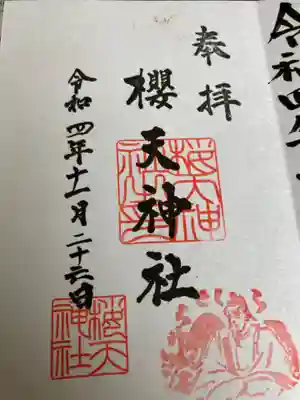 奉拝
櫻天神社
令和四年十一月二十六日
櫻天神社
令和四年